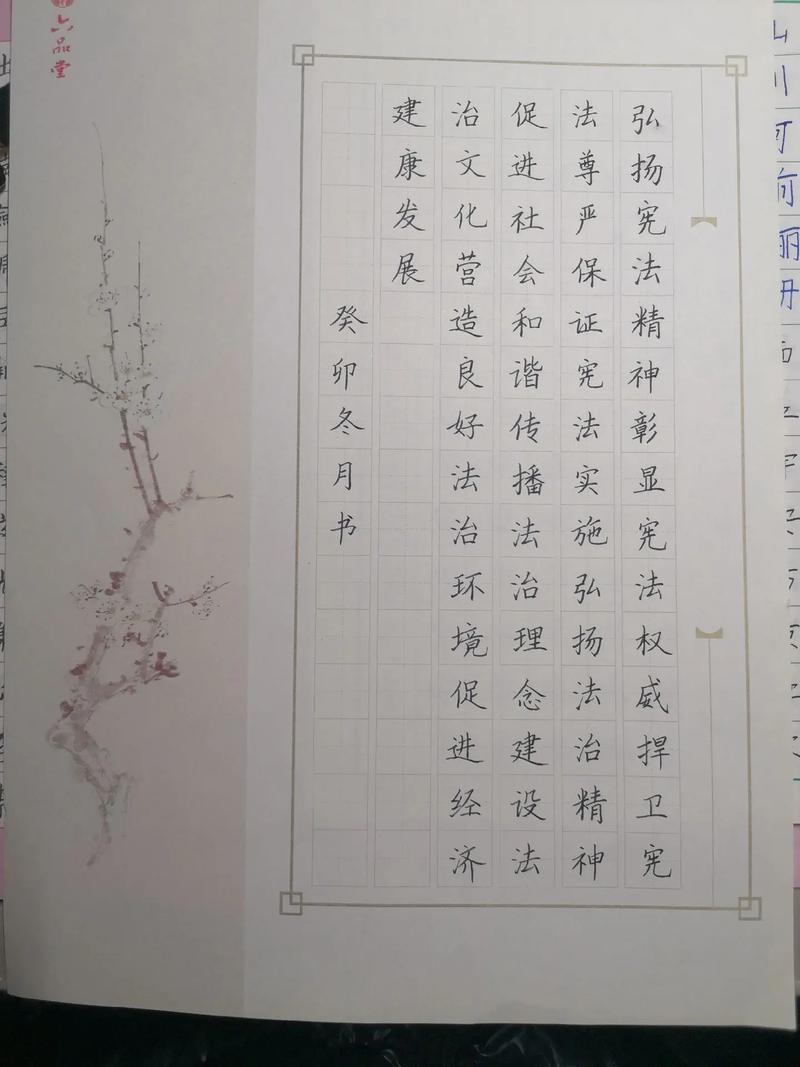 弘扬宪法精神彰显宪法权威捍卫宪
法尊严保证宪法实施弘扬法治精神
促进社会和谐传播法治理念建设法
治文化营造良好法治环境促进经济
建康发展
癸卯冬月书
六品堂
山川河向丽丹